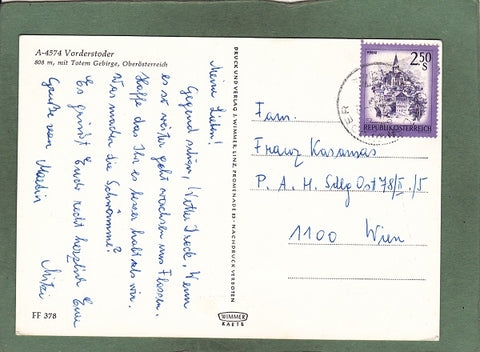 A-4574 Vorderstoder
808 m, mit Totem Gebirge, Oberösterreich
Meine Lieben!
Gegend prima, Wetter Dreck, Wenn
es so weiter geht wachsen uns Flossen.
Hoffe das Ihr es besser habt als wir.
Was machen die Schwämme?
Es grüßt Euch recht herzlich Eure
Mitzi
Grüße von Martin
FF 378
DRUCK UND VERLAG J. WIMMER, LINZ, PROMENADE 23 - NACHDRUCK VERBOTEN
WIMMER
KARTE
2,50
S
REPUBLIK ÖSTERREICH
Fam.
Franz Kasamas
P. A. H. Sdlg Ost 78/IV./5
1100 Wien